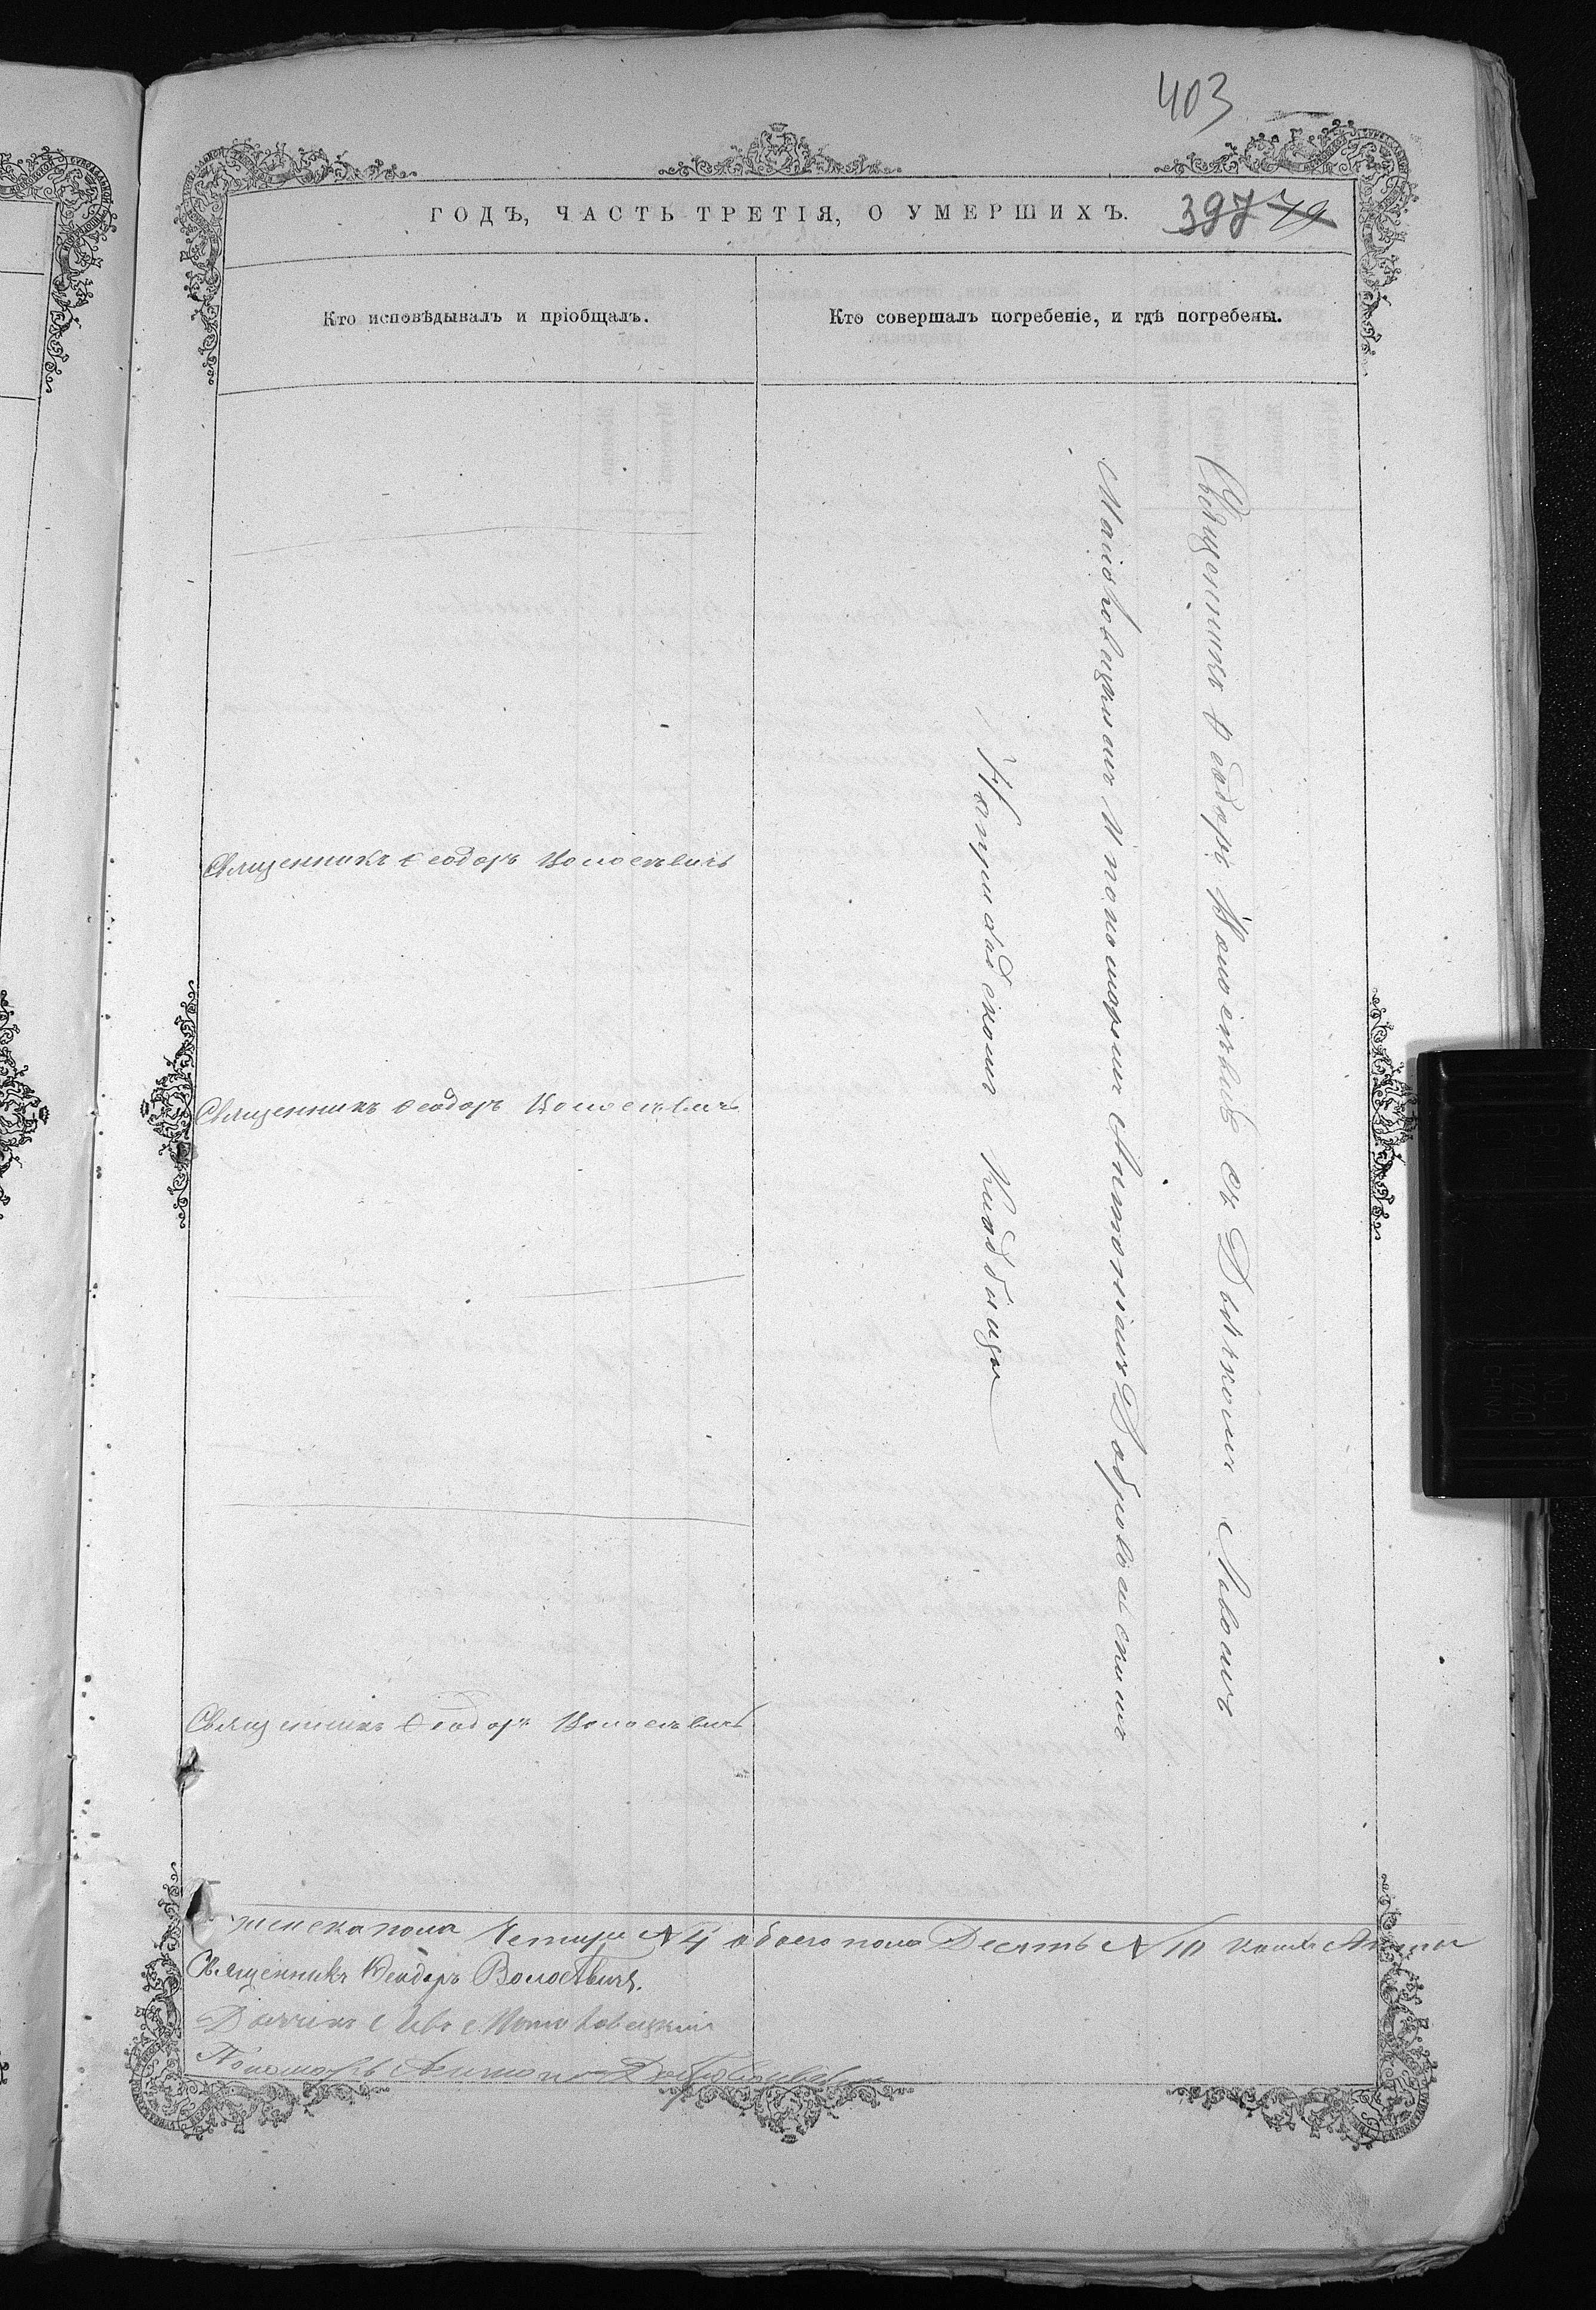 403
ГОДЪ, ЧАСТЬ ТРЕТІЯ, О УМЕРШИХЪ.
397 79
Кто исповѣдывалъ и пріобщалъ.
Кто совершалъ погребеніе, и гдѣ погребены.
Священникъ Ѳеодоръ Волосевичъ
Священникъ Ѳеодоръ Волосевичъ
Священникъ Ѳеодоръ Волосевичъ
Священникъ Ѳеодоръ Волосевичъ съ Дьякомъ
и пономаремъ Антоніемъ
На приходскомъ Кладбищѣ
женска пола Четыри № 4 обоего пола Десять № 10
Священникъ Ѳеодоръ Волосевичъ.
Дьячекъ Левъ
Пономарь Антоній